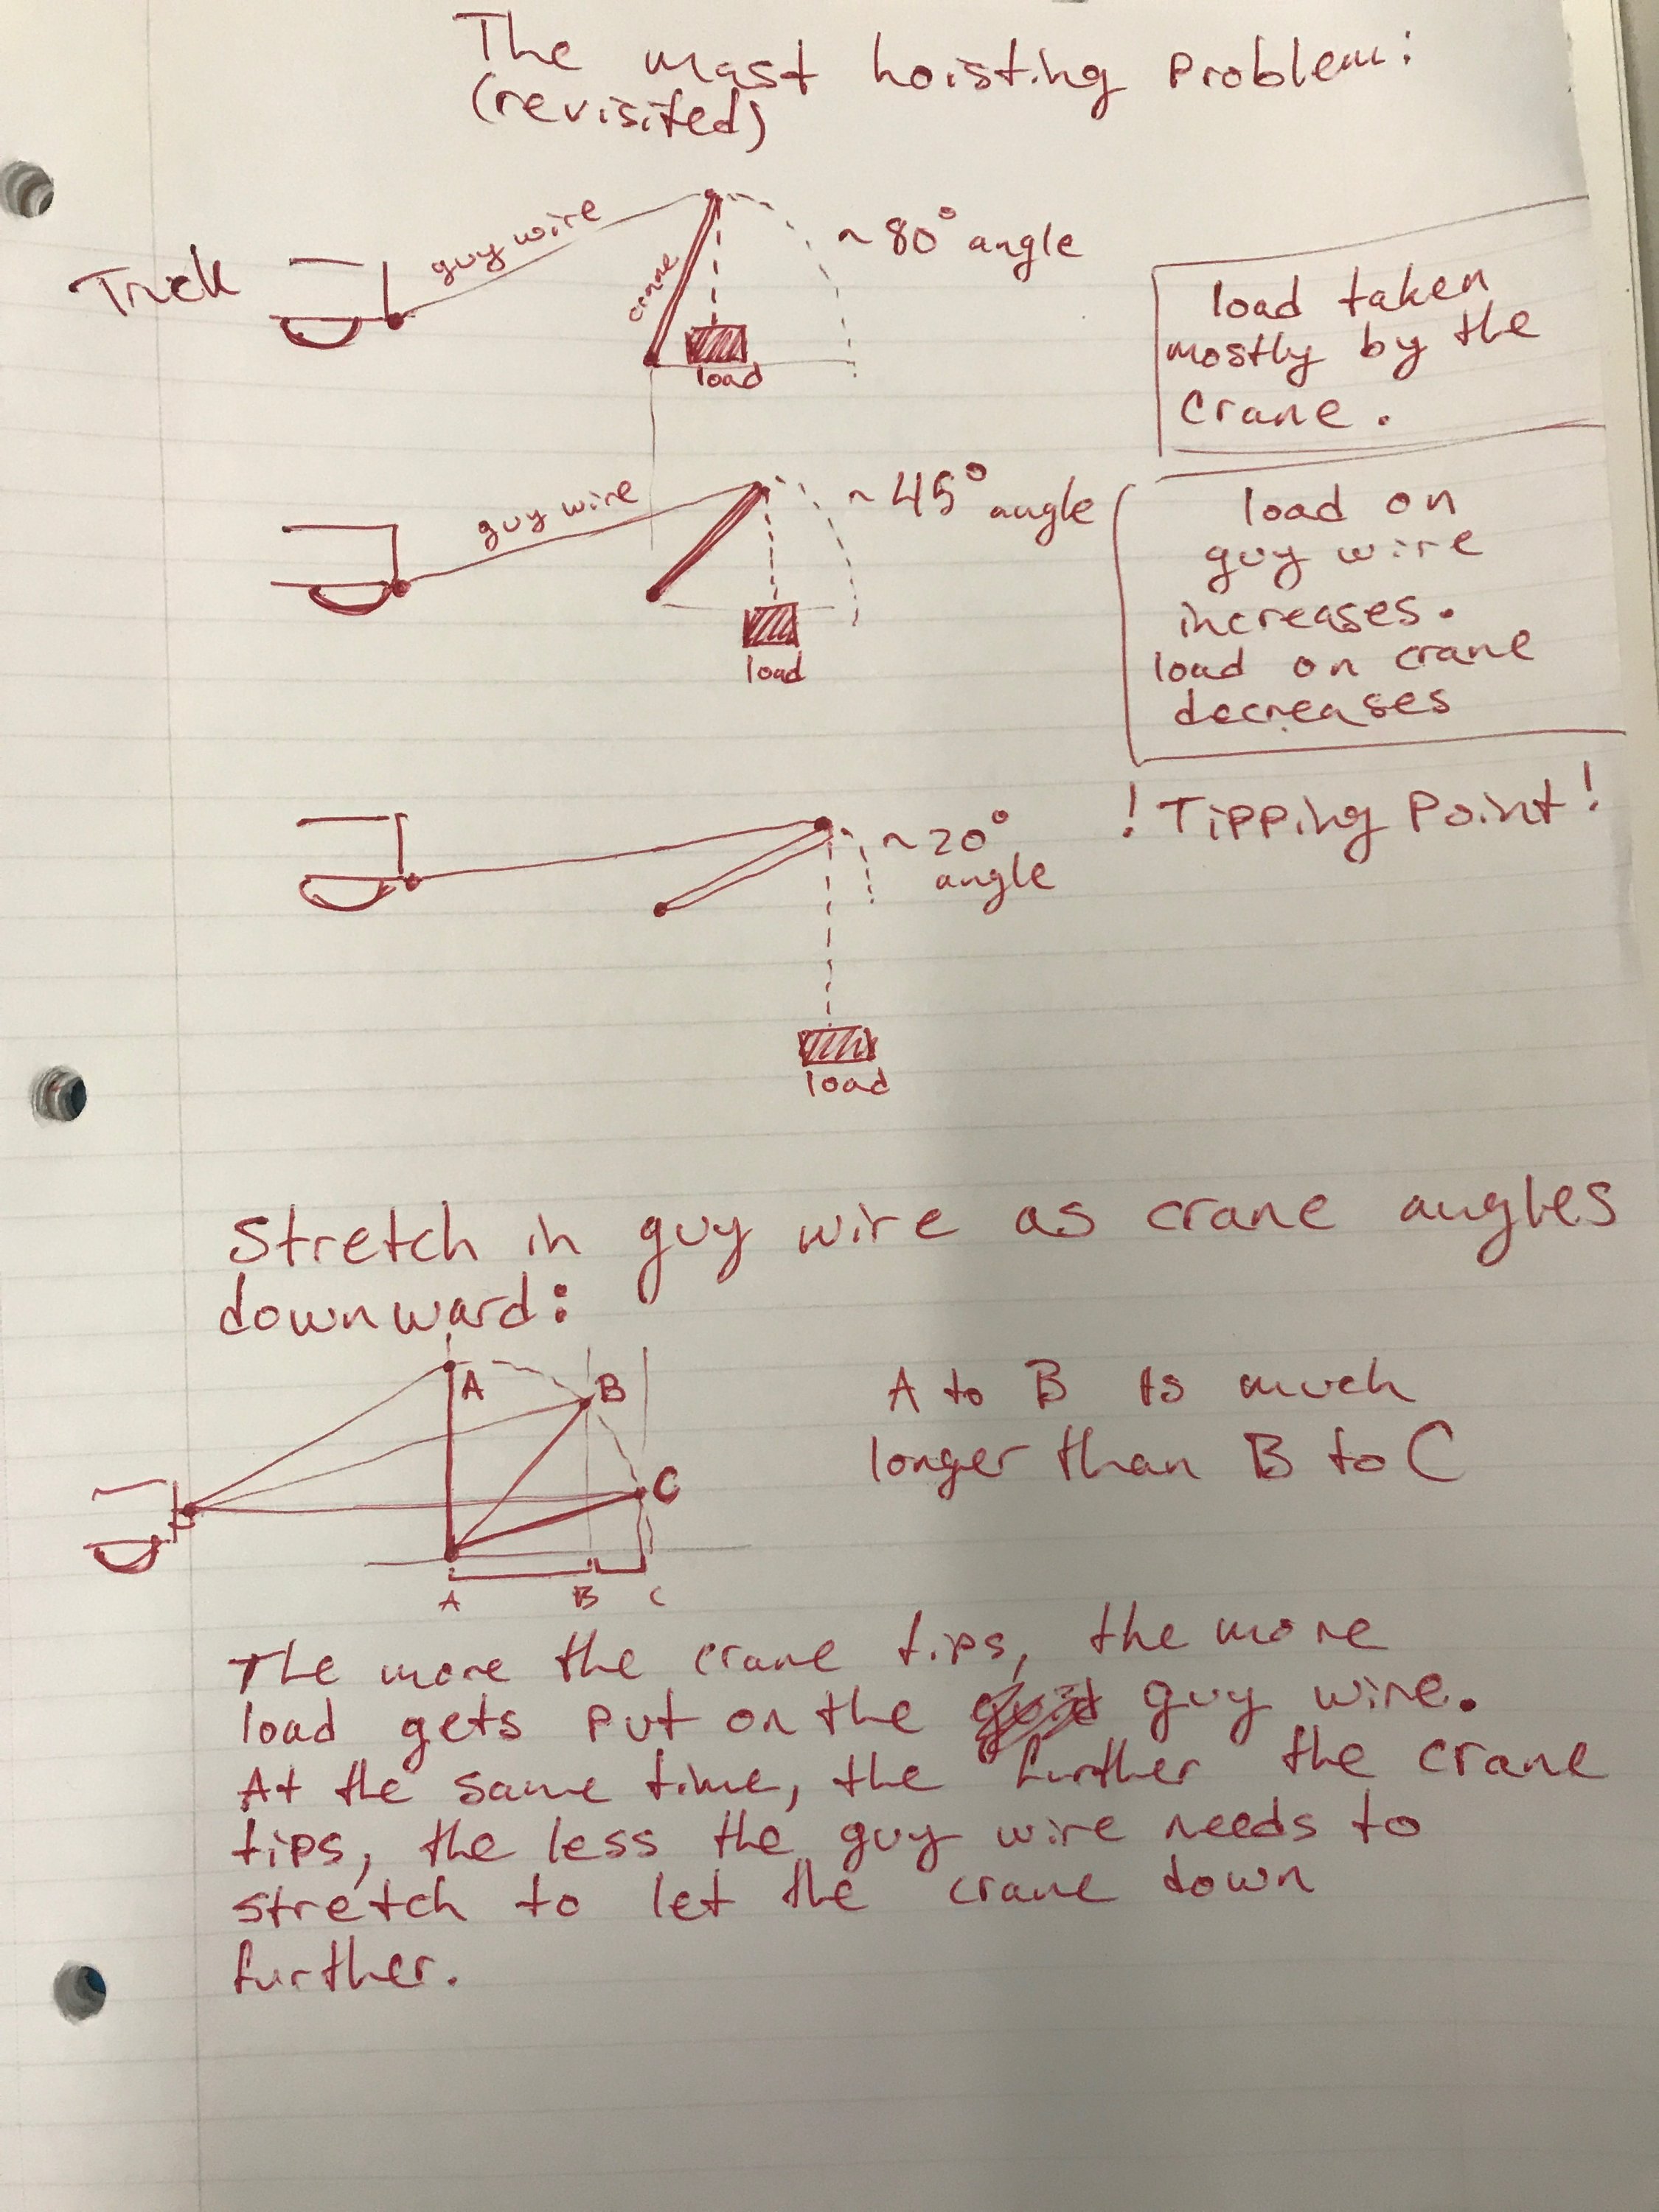 The mast hoisting problem:
(revisited)
Truck
guy wire
crane
~80° angle
load
load taken
mostly by the
crane.
guy wire
~45° angle
load
load on
guy wire
increases.
load on crane
decreases
! Tipping Point !
~20°
angle
load
Stretch in guy wire as crane angles
downward:
A
B
C
A B C
A to B is much
longer than B to C
The more the crane tips, the more
load gets put on the guy wire.
At the same time, the further the crane
tips, the less the guy wire needs to
stretch to let the crane down
further.